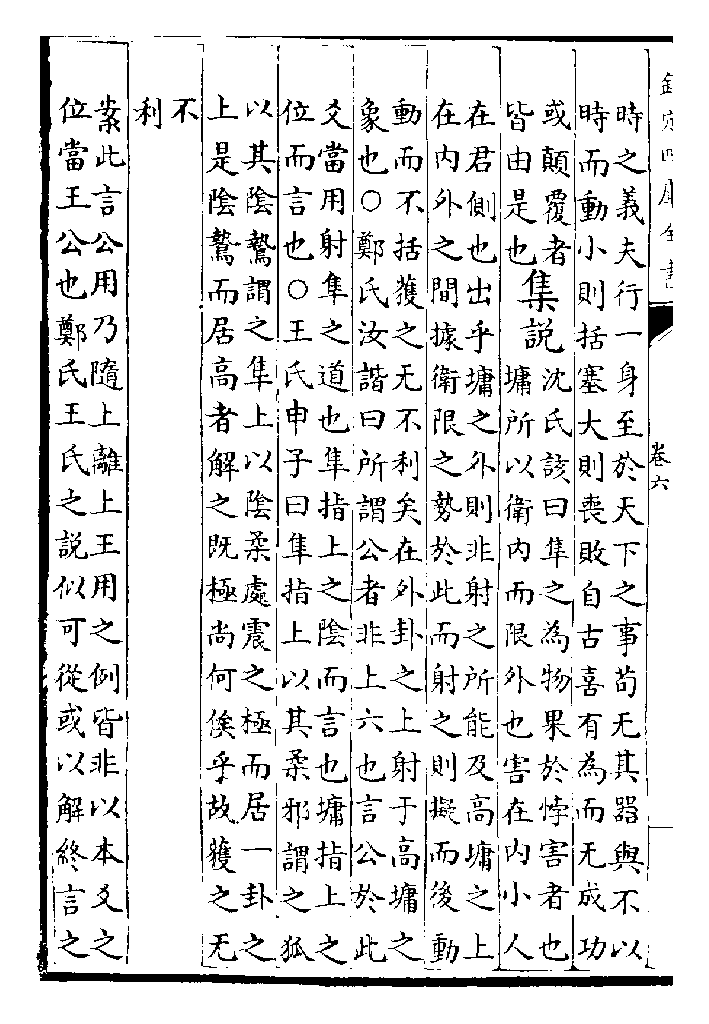 欽定四庫全書
卷六
時之義夫行一身至於天下之事苟无其器與不以
時而動小則括塞大則喪敗自古喜有為而无成功
或顛覆者
皆由是也
集説
沈氏該曰隼之為物果於悖害者也
墉所以衛内而限外也害在内小人
在君側也出乎墉之外則非射之所能及高墉之上
在内外之間據衛限之勢於此而射之則擬而後動
動而不括獲之无不利矣在外卦之上射于高墉之
象也○鄭氏汝諧曰所謂公者非上六也言公於此
爻當用射隼之道也隼指上之陰而言也墉指上之
位而言也○王氏申子曰隼指上以其柔邪謂之狐
以其陰鷙謂之隼上以陰柔處震之極而居一卦之
上是陰鷙而居高者解之既極尚何俟乎故獲之无
不
利
案此言公用乃隨上離上王用之例皆非以本爻之
位當王公也鄭氏王氏之説似可從或以解終言之